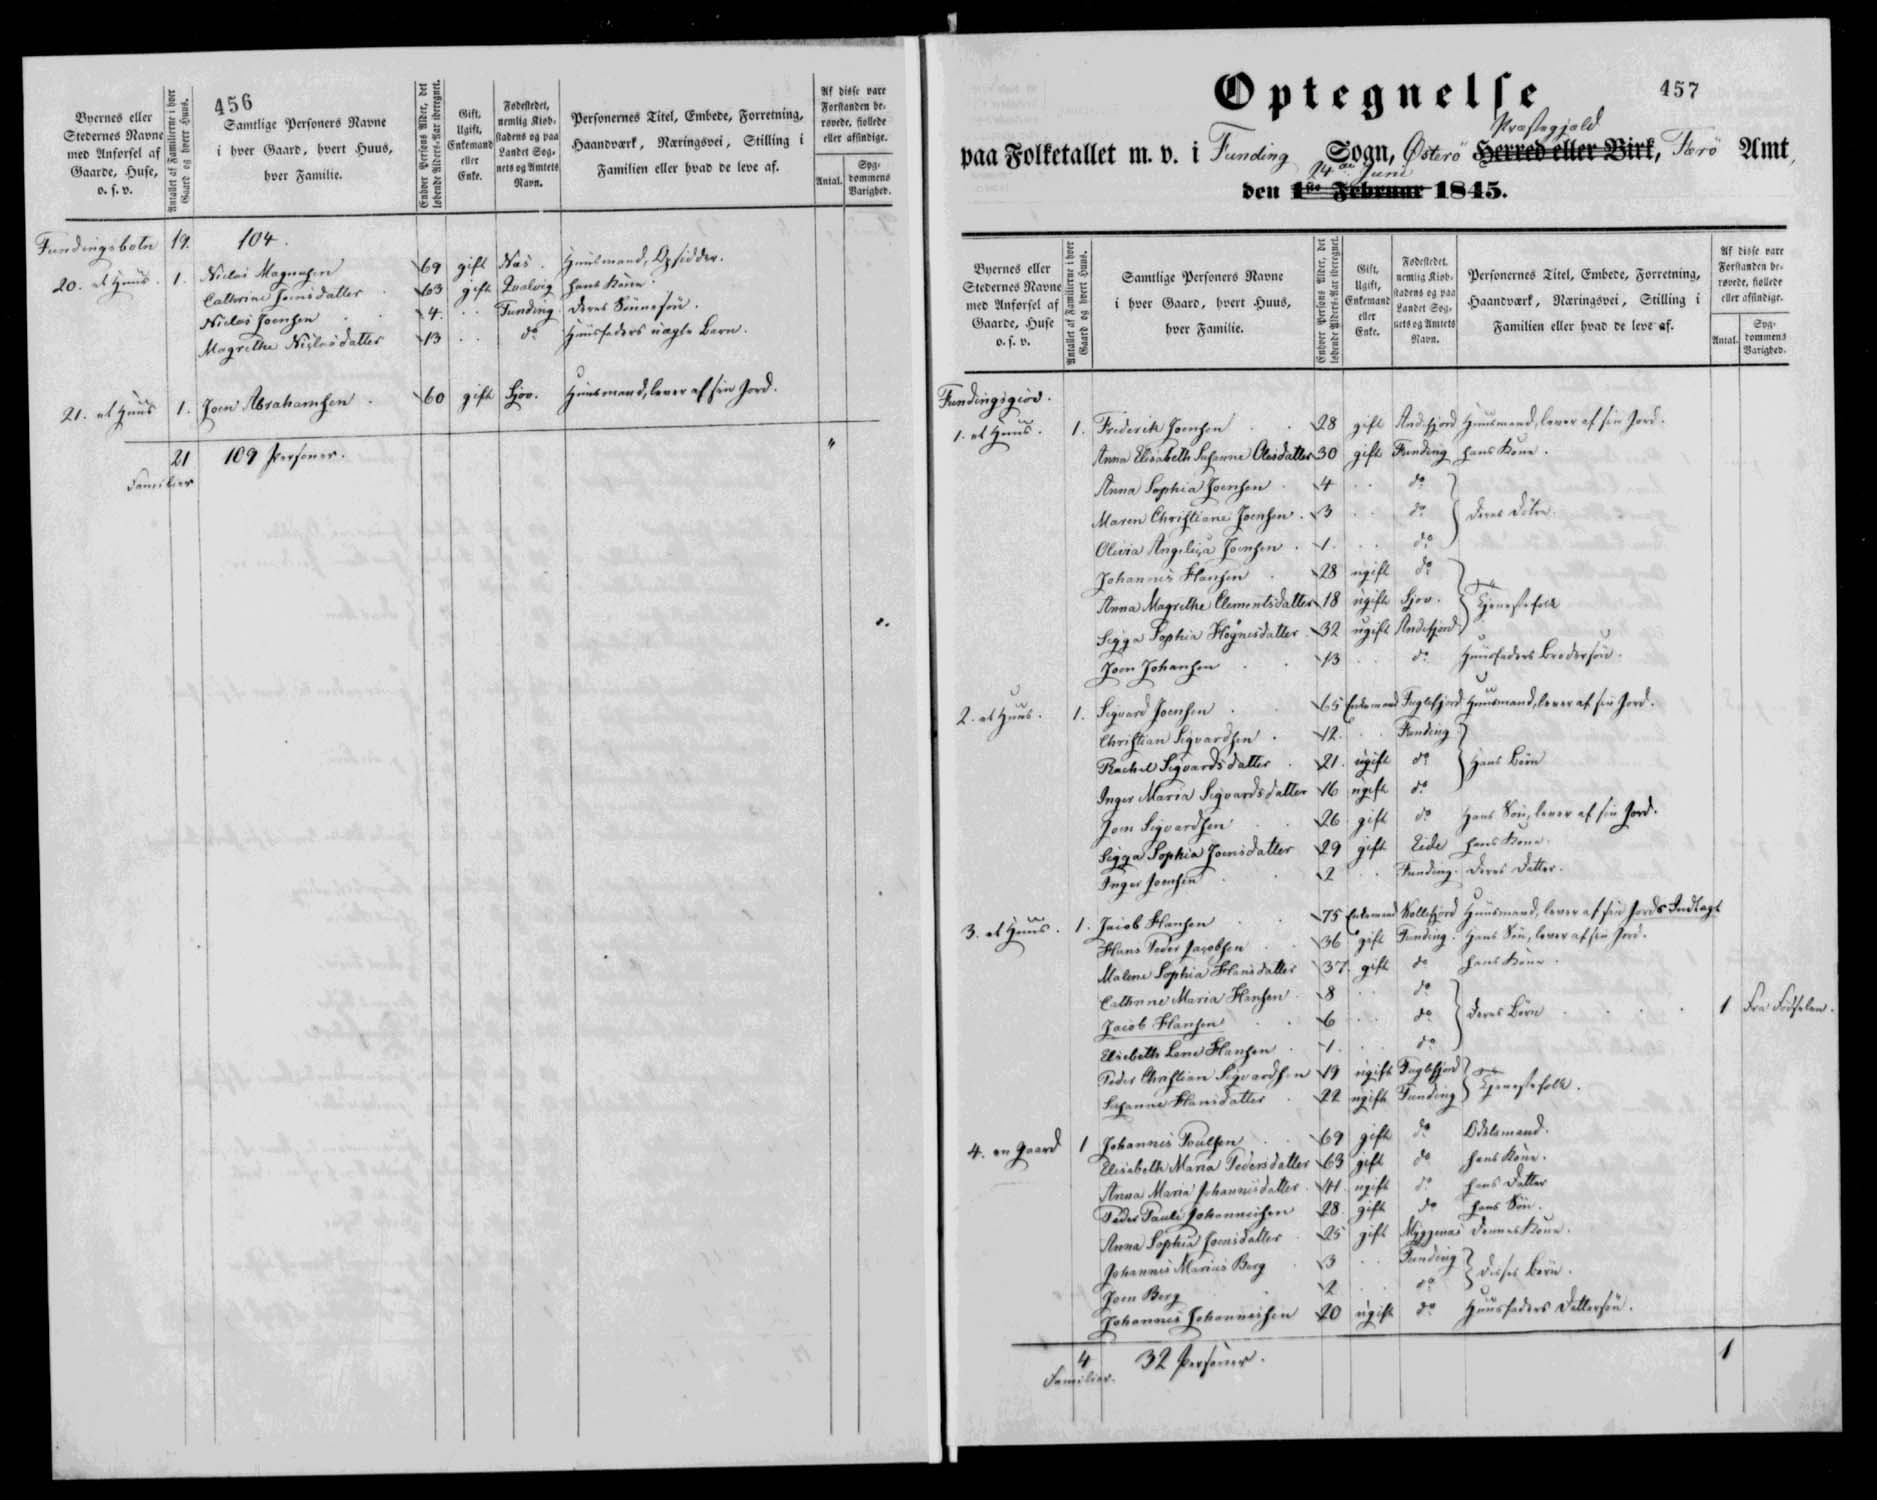 456
Byernes eller Stedernes Navne med Anførsel af Gaarde, Huse, o. s. v.
Antallet af Familierne i hver Gaard og hvert Huus.
Samtlige Personers Navne i hver Gaard, hvert Huus, hver Familie.
Enhver Persons Alder, det løbende Alders-Aar iberegnet.
Gift, Ugift, Enkemand eller Enke.
Fødestedet, nemlig Kiøbstadens og paa Landet Sognets og Amtets Navn.
Personernes Titel, Embede, Forretning, Haandværk, Næringsvei, Stilling i Familien eller hvad de leve af.
Af disse vare Forstanden berøvede, fiollede eller afsindige.
Antal.
Sygdommens Varighed.
Fundingsbotn 19. 104.
20. et Huus. 1. Niclas Magnusen 69 gift Næs. Huusmand, Opsidder.
Cathrine Joensdatter 63 gift Qvalvig hans Kone.
Niclas Joensen 4. Funding Deres Sønnesøn.
Magrethe Niclasdatter 13 do Huusfaders uægte Barn.
21. et Huus 1. Joen Abrahamsen 60 gift Gjov. Huusmand, lever af sin Jord.
21 Familier 109 Personer. "
457
Optegnelse
paa Folketallet m. v. i Funding Sogn, Østerö Herred eller Birk, Præstegjæld Færö Amt,
den 1ste Februar 24de Juni 1845.
Byernes eller Stedernes Navne med Anførsel af Gaarde, Huse o. s. v.
Antallet af Familierne i hver Gaard og hvert Huus.
Samtlige Personers Navne i hver Gaard, hvert Huus, hver Familie.
Enhver Persons Alder, det løbende Alders-Aar iberegnet.
Gift, Ugift, Enkemand eller Enke.
Fødestedet, nemlig Kiøbstadens og paa Landet Sognets og Amtets Navn.
Personernes Titel, Embede, Forretning, Haandværk, Næringsvei, Stilling i Familien eller hvad de leve af.
Af disse vare Forstanden berøvede, fiollede eller afsindige.
Antal.
Sygdommens Varighed.
Fundingsgiov.
1. et Huus. 1. Frederik Joensen 28 gift Andefjord Huusmand, lever af sin Jord.
Anna Elisabeth Susanne Olesdatter 30 gift Funding hans Kone.
Anna Sophia Joensen 4 do
Maren Christiane Joensen 3 do Deres Døtre.
Olivia Angelica Joensen 1. do
Johannes Hansen 28 ugift do
Anna Magrethe Clementsdatter 18 ugift Gjov. Tjenestefolk
Sigga Sophia Høgnesdatter 32 ugift Andefjord
Joen Johansen 13 do Huusfaders Brodersøn.
2. et Huus. 1. Sigvard Joensen 65 Enkemand Fuglefjord Huusmand, lever af sin Jord.
Christian Sigvardsen 12. Funding
Rachel Sigvardsdatter 21. ugift do Hans Børn
Inger Maria Sigvardsdatter 16 ugift do
Joen Sigvardsen 26 gift do Hans Søn, lever af sin Jord.
Sigga Sophia Joensdatter 29 gift Eide hans Kone.
Inger Joensen 2 Funding. Deres Datter.
3. et Huus. 1. Jacob Hansen 75 Enkemand Kollefjord Huusmand, lever af sin Jords Indtægt
Hans Peder Jacobsen 36 gift Funding. Hans Søn, lever af sin Jord.
Malene Sophia Hansdatter 37. gift do hans Kone.
Cathrine Maria Hansen 8 do
Jacob Hansen 6 do Deres Børn 1 Fra Fødselen.
Elsebeth Lene Hansen 1. do
Peder Christian Sigvardsen 19 ugift Fuglefjord
Susanne Hansdatter 22 ugift Funding Tjenestefolk.
4. en Gaard 1 Johannes Poulsen 69 gift do Odelsmand.
Elisabeth Maria Pedersdatter 63 gift do hans Kone.
Anna Maria Johannesdatter 41 ugift do hans Datter
Peder Pauli Johannesen 28. gift do hans Søn.
Anna Sophia Joensdatter 25 gift Myggenæs dennes Kone.
Johannes Marius Berg 3 Funding
Joen Berg 2 do disses Børn.
Johannes Johannesen 20 ugift do Huusfaders Dattersøn.
4 Familier. 32 Personer. 1